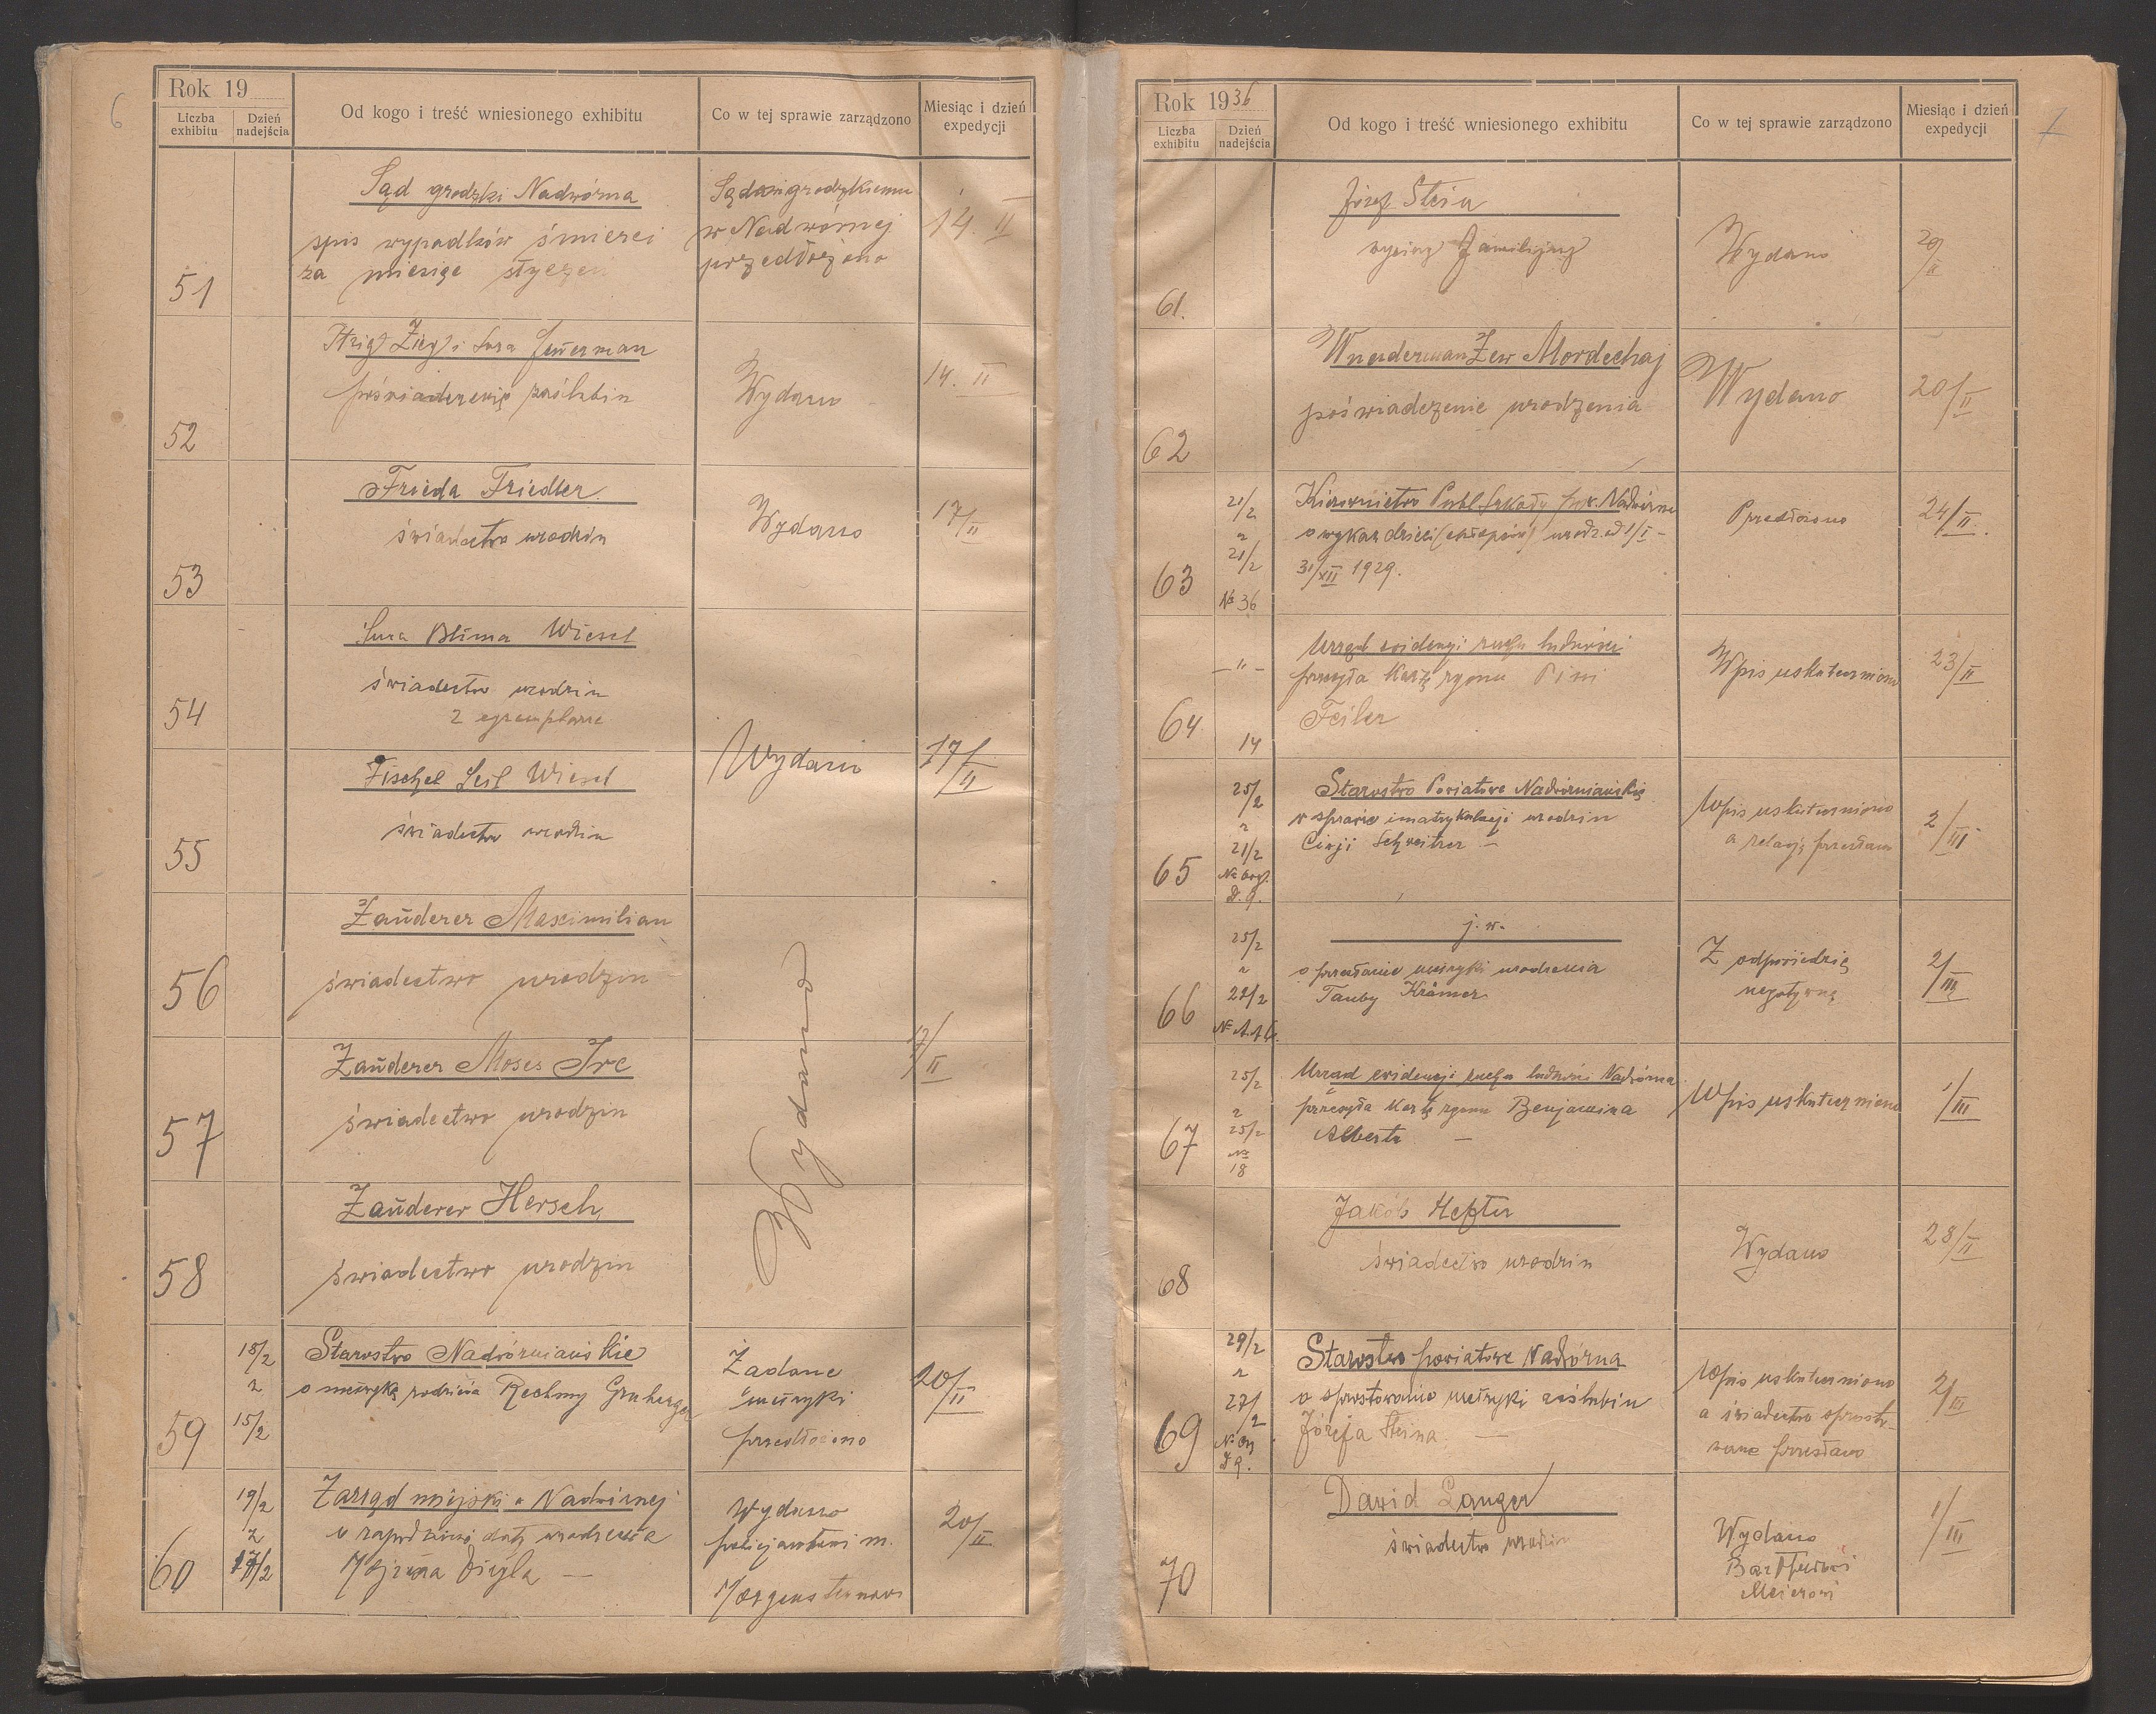 6
Rok 19
Liczba exhibitu
Dzień nadejścia
Od kogo i treść wniesionego exhibitu
Co w tej sprawie zarządzono
Miesiąc i dzień expedycji
51
Sąd grodzki Nadwórna
spis wypadków śmierci
za miesiąc styczeń
Sądowi grodzkiemu
w Nadwórnej
przedłożono
14. II
52
i Sara Feuerman
poświadczenie zaślubin
Wydano
14. II
53
Frieda Friedler
świadectwo urodzin
Wydano
17/II
54
Sura Blima Wiesel
świadectwo urodzin
2 egzemplarze
55
Fischel Leib Wiesel
świadectwo urodzin
Wydano
17/II
56
Zauderer Maximilian
świadectwo urodzin
57
Zauderer Moses
świadectwo urodzin
Wydano
17/II
58
Zauderer Hersch
świadectwo urodzin
59
18/2
z
15/2
Starostwo Nadwórniańskie
o metrykę Rechmy
Żądane
metryki
przedłożono
20/II
60
19/2
z
17/2
Zarząd miejski w Nadwórnej
datę urodzenia
Wydano
policjantowi m.
20/II
Rok 1936
Liczba exhibitu
Dzień nadejścia
Od kogo i treść wniesionego exhibitu
Co w tej sprawie zarządzono
Miesiąc i dzień expedycji
7
61.
Józef Stein
wyciąg familijny
Wydano
20/II
62
Wunderman Zew Mordechaj
poświadczenie urodzenia
Wydano
20/II
63
21/2
z
21/2
№ 36
Kierownictwo Publ. Szkoły Nadwórna
o wykaz dzieci (chłopców) urodz. od 1/I –
31/XII 1929.
Przedłożono
24/II.
64
– " –
14
Urząd ewidencji ruchu ludności
przesyła kartę zgonu Pini
Feiler
Wpis uskuteczniono
23/II
65
25/2
z
21/2
Starostwo Powiatowe Nadwórniańskie
w sprawie imatrykulacji urodzin
Cirji Schweitzer –
Wpis uskuteczniono
a relację przesłano
2/III
66
25/2
z
22/2
j. w.
o przesłanie metryki urodzenia
Tauby Krämer
Z odpowiedzią
negatywną
2/III
67
25/2
z
25/2
№
18
Urząd ewidencji ruchu ludności Nadwórna
przesyła kartę zgonu Benjamina
Alberta –
Wpis uskuteczniono
1/III
68
Jakób Hefter
świadectwo urodzin
Wydano
28/II
69
29/2
z
27/2
Starostwo powiatowe Nadwórna
o sprostowanie metryki zaślubin
Józefa Steina –
Wpis uskuteczniono
a świadectwo sprosto-
wane przesłano
2/III
70
Dawid Langer
świadectwo urodzin
Wydano
Meierowi
1/III